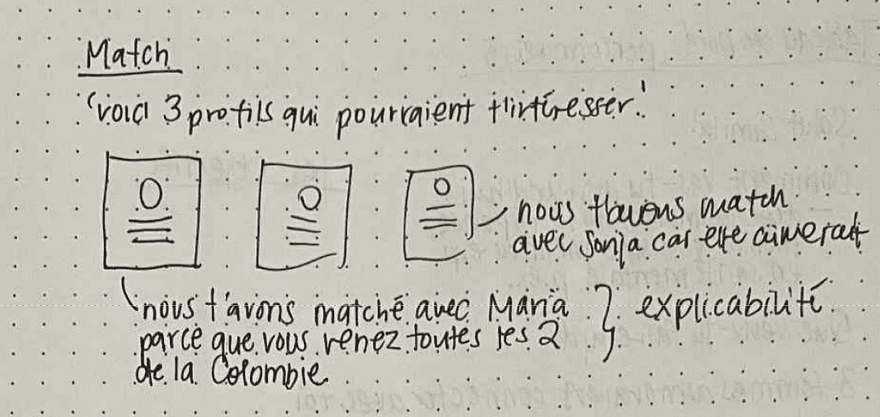 Match
'voici 3 profils qui pourraient t'intéresser'
nous t'avons match
avec Sonja car elle aimerait
nous t'avons matché avec Maria
parce que vous venez toutes les 2
de la Colombie
explicabilité